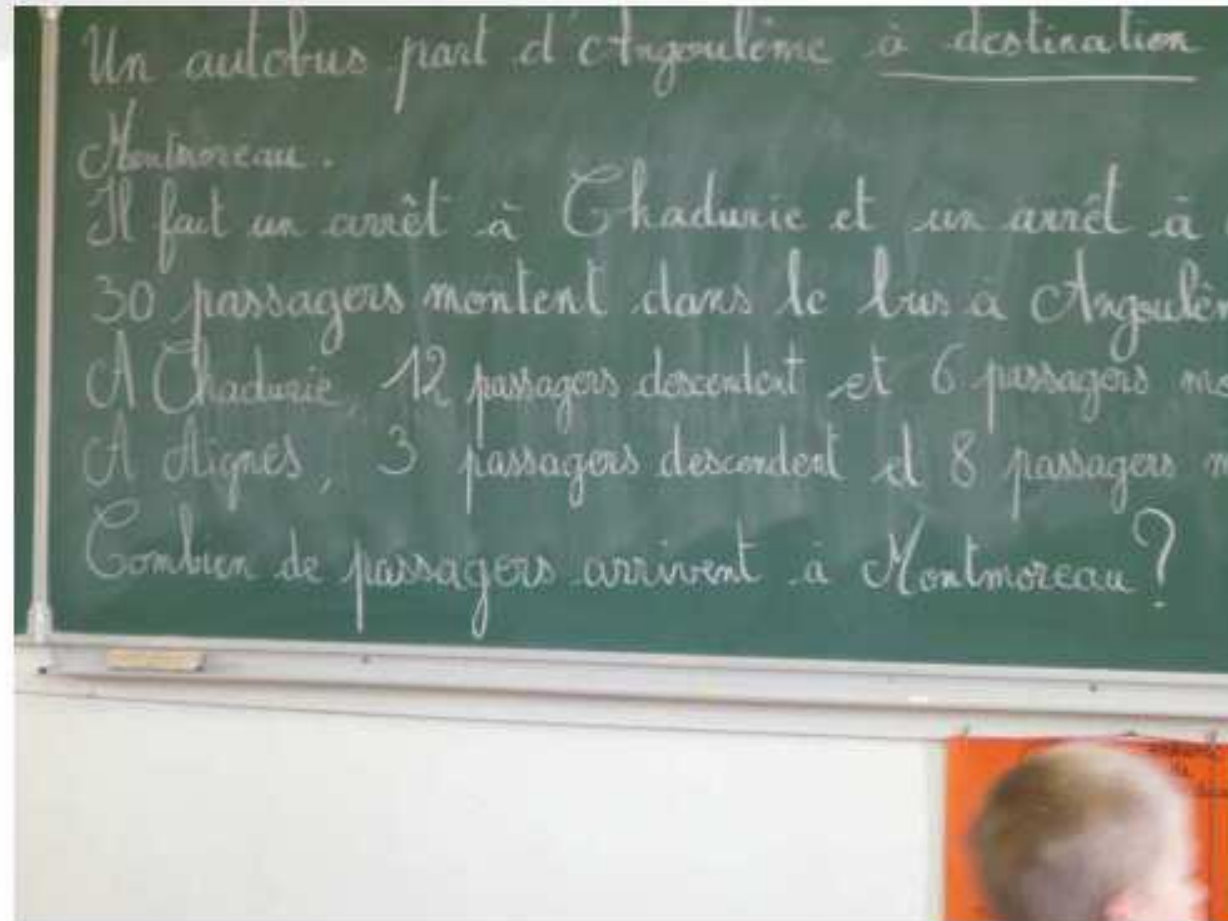 Un autobus part d'Angoulême à destination
Montmoreau.
Il fait un arrêt à Chadurie et un arrêt à
30 passagers montent dans le bus à Angoulêm
A Chadurie, 12 passagers descendent et 6 passagers mo
A Aignes, 3 passagers descendent et 8 passagers m
Combien de passagers arrivent à Montmoreau ?